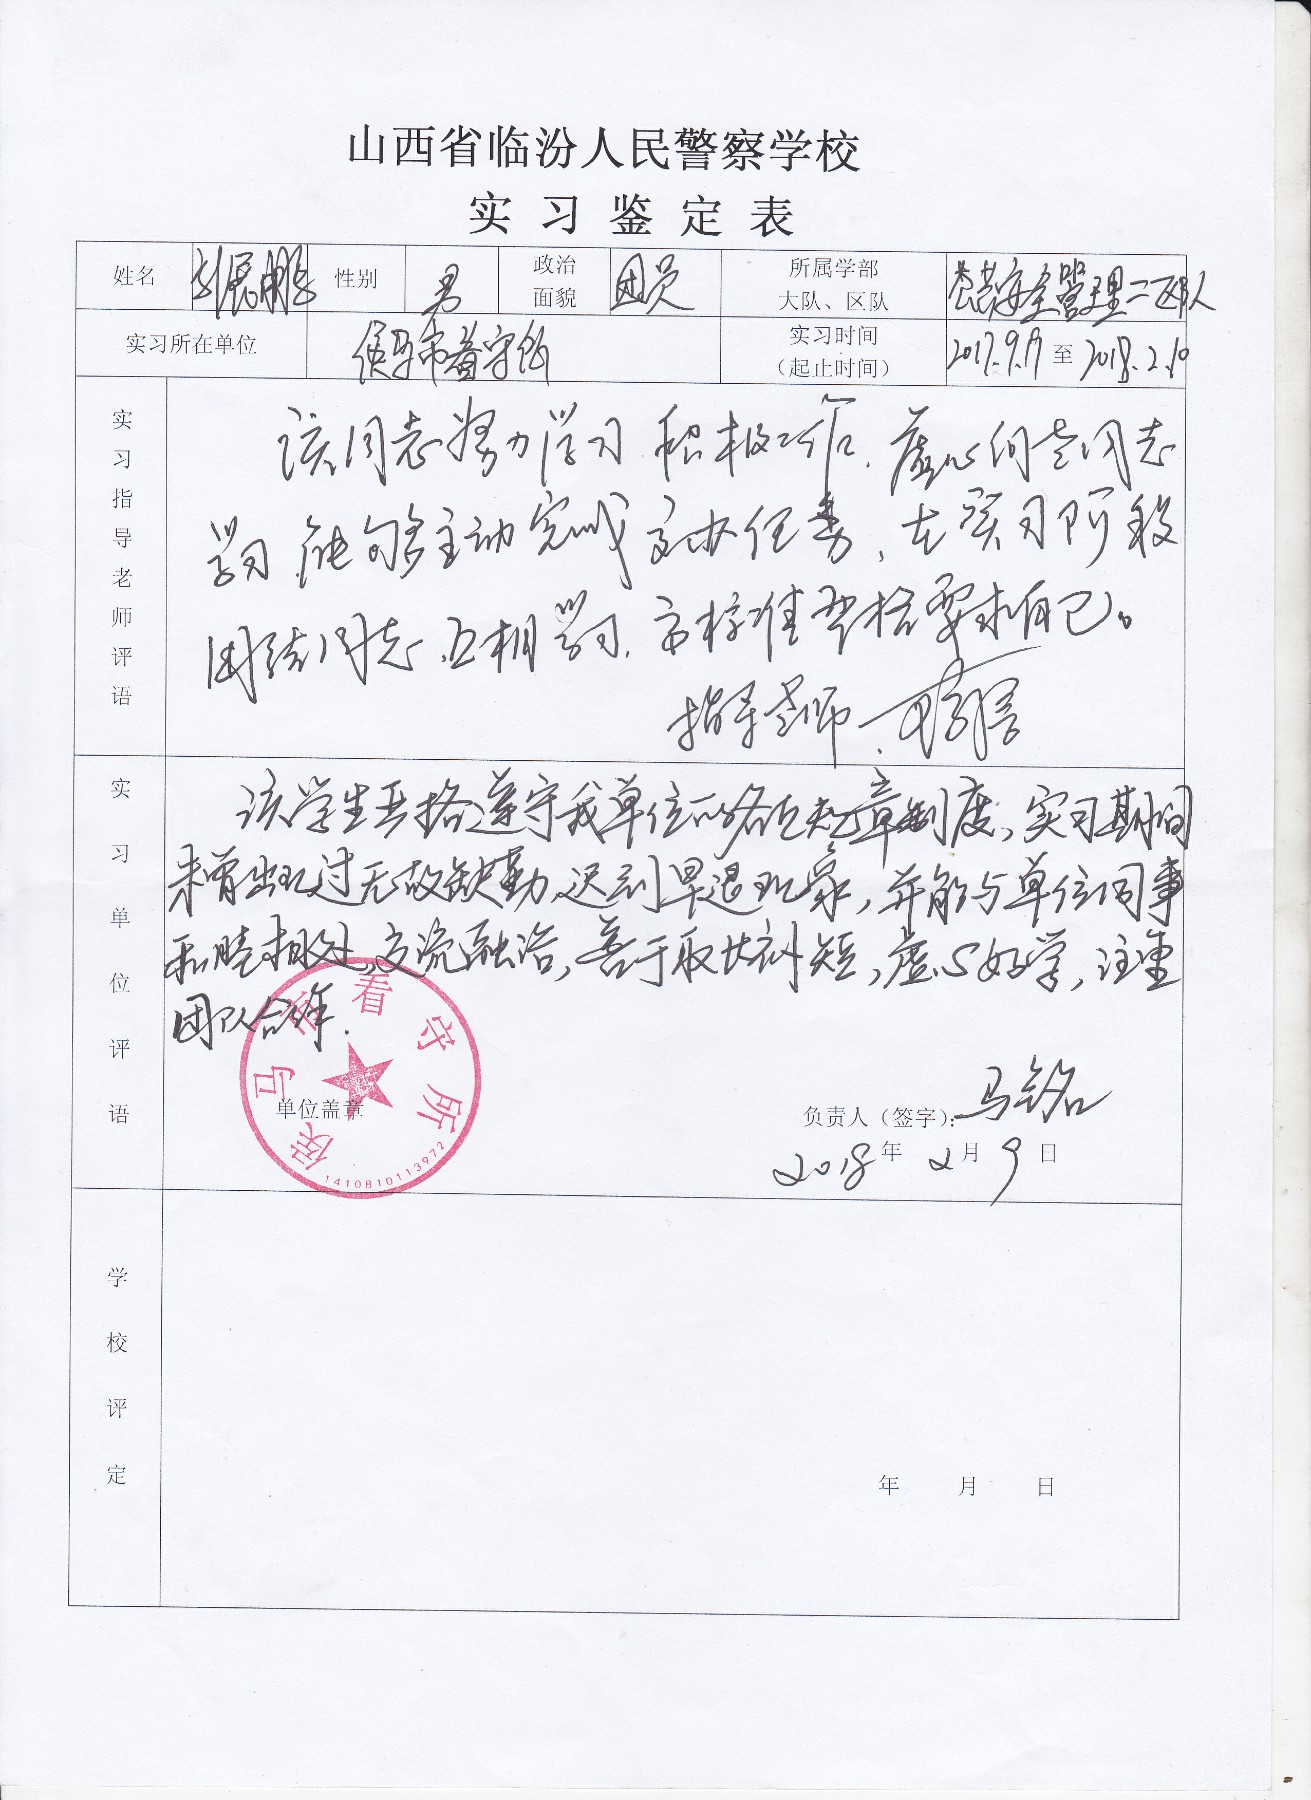 山西省临汾人民警察学校
实习鉴定表
姓名 刘晨鹏 性别 男 政治面貌 团员 所属学部大队、区队 公共安全管理二区队
实习所在单位 侯马市看守所 实习时间（起止时间） 2017.9.17 至 2018.2.10
实习指导老师评语
该同志努力学习、积极工作、虚心向老同志
学习、能够主动完成交办任务、在实习阶段
团结同志、互相学习、高标准严格要求自己。
指导老师
实习单位评语
该学生严格遵守我单位的各项规章制度，实习期间
未曾出现过无故缺勤、迟到早退现象，并能与单位同事
和睦相处，交流融洽，善于取长补短，虚心好学，注重
团队合作．
侯马市看守所
1410810113972
单位盖章
负责人（签字）： 马铭
2018 年 2 月 9 日
学校评定
年 月 日